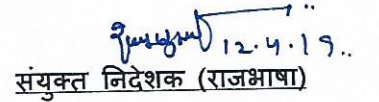 12.4.19..
संयुक्त निदेशक (राजभाषा)